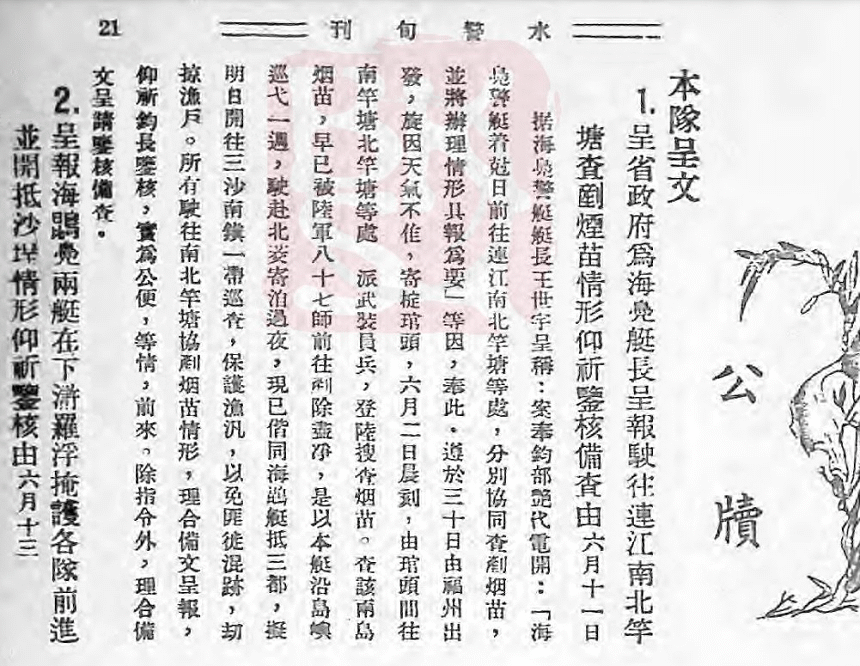 水警旬刊
21
公牘
本隊呈文
1. 呈省政府爲海鳧艇長呈報駛往連江南北竿
塘查剷煙苗情形仰祈鑒核備查由六月十一日
据海鳧警艇艇長王世宇呈稱：案奉鈞部艷代電開：「海
鳧警艇着尅日前往連江南北竿塘等處，分別協同查剷烟苗，
並將辦理情形具報爲要」等因，奉此。遵於三十日由福州出
發，旋因天氣不隹，寄椗琯頭，六月二日晨刻，由琯頭開往
南竿塘北竿塘等處 派武裝員兵，登陸搜查烟苗。查該兩島
烟苗，早已被陸軍八十七師前往剷除盡净，是以本艇沿島嶼
巡弋一週，駛赴北茭寄泊過夜，現已偕同海鴟艇抵三都，擬
明日開往三沙南鎮一帶巡查，保護漁汛，以免匪徒混跡，刧
掠漁戶。所有駛往南北竿塘協剷烟苗情形，理合備文呈報，
仰祈鈞長鑒核，實爲公便，等情，前來。除指令外，理合備
文呈請鑒核備查。
2. 呈報海鴟鳧兩艇在下滸羅浮掩護各隊前進
並開抵沙埕情形仰祈鑒核由六月十三